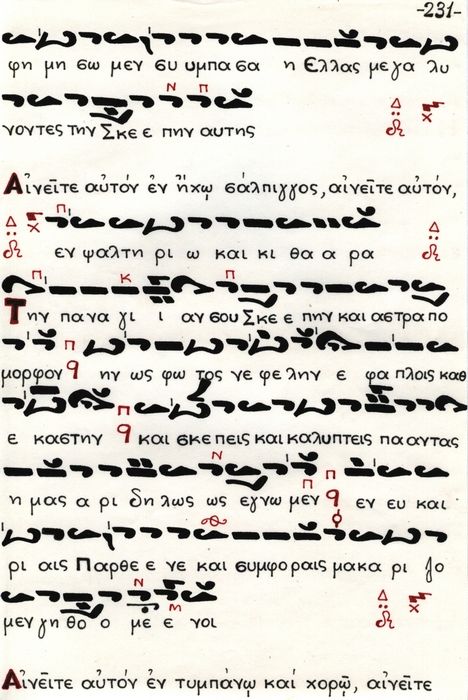 -231-
φη μη σω μεν συ υμπασα η Ελλας μεγα λυ
Ν Π
νοντες την Σκε ε πην αυτης
Δ
Αἰνεῖτε αὐτόν ἐν ἤχῳ σάλπιγγος, αἰνεῖτε αὐτόν,
Π
Δ Δ
εν ψαλτη ρι ω και κι θα α ρα
Π Κ Π
Την πανα γι ι αν σου Σκε ε πην και αστρα πο
Π
μορφον q ην ως φω τος νε φε λην ε φα πλοις καθ
Π
ε καστην q και σκε πεις και καλυπτεις πα αντας
Ν Π Π
η μας α ρι δη λως ως εγνω μεν q εν ευ και
ρι αις Παρθε ε νε και συμφοραις μακα ρι ζο
Ν Μ Δ
μεν γη θο ο με ε νοι
Αἰνεῖτε αὐτόν ἐν τυμπάνῳ καί χορῶ, αἰνεῖτε